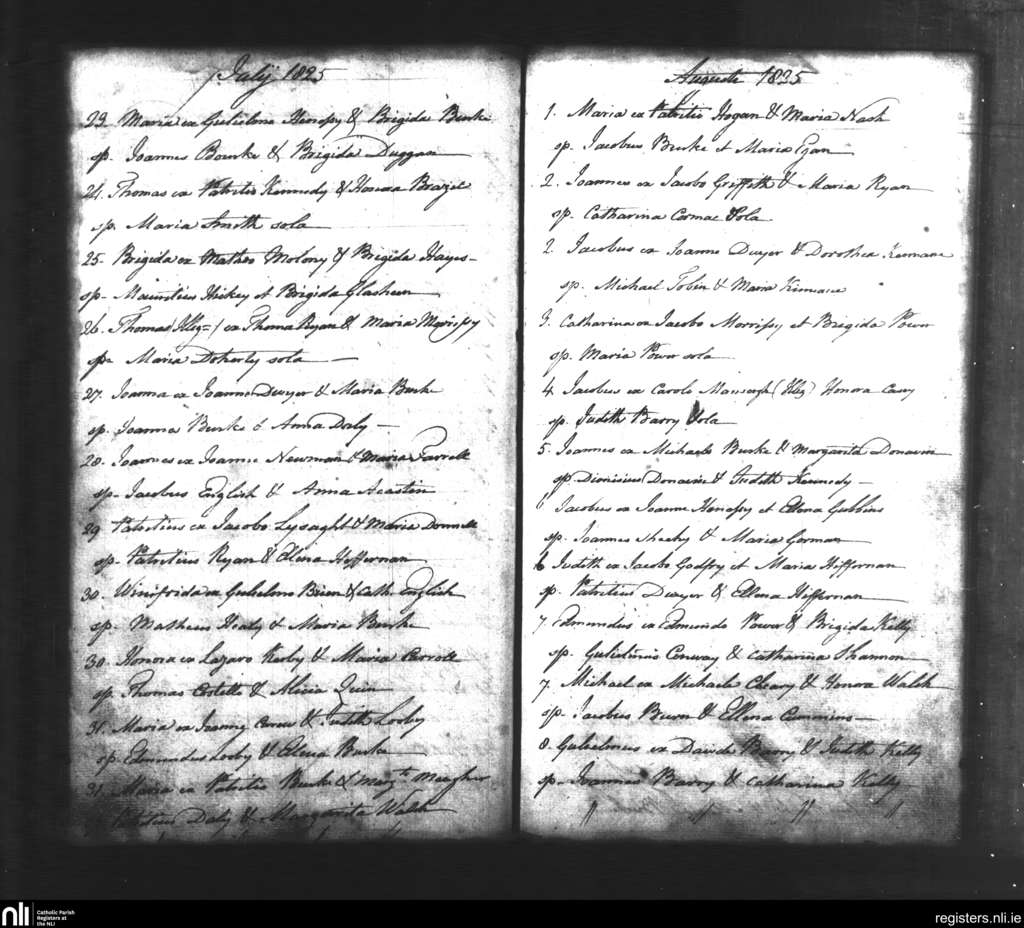 July 1825
23. Maria ex Gulielmo Henessy & Brigida Burke
sp. Joannes Bourke & Brigida Duggan
24. Thomas ex Patritio Kennedy & Honora Brazil
sp. Maria Smith sola
25. Brigida ex Matheo Molony & Brigida Hayes
sp. Mauritius Hickey et Brigida Glasheen
26. Thomas (Illeg=) ex Thoma Ryan & Maria Morrissy
sp. Maria Doherty sola
27. Joanna ex Joanne Dwyer & Maria Burke
sp. Joanna Burke & Anna Daly
28. Joannes ex Joanne Newman & Maria Farrell
sp. Jacobus English & Anna
29 Patritius ex Jacobo Lysaght & Maria Donnell
sp. Patritius Ryan & Ellena Heffernan
30. Winifrida ex Gulielmo Brien & Cath. English
sp. Matheus Healy & Maria Burke
30. Honora ex Lazaro Kerby & Maria Carroll
sp. Thomas Costello & Alicia Quin
31. Maria ex & Judith Looby
sp. Edmundus Looby & Ellena Burke
31. Maria ex Patritio Burke & Margta Meagher
Patritius Daly & Margarita Walsh
Auguste 1825
1. Maria ex Patritio Hogan & Maria Nash
sp. Jacobus Burke et Maria Egan
2. Joannes ex Jacobo Griffith & Maria Ryan
sp. Catharina Cormac Sola
2. Jacobus ex Joanne Dwyer & Dorothea Kinnane
sp. Michael Tobin & Maria Kinnane
3. Catharina ex Jacobo Morrissy et Bregida Power
sp. Maria Power sola
4 Jacobus ex Carolo Mansergh (Illeg) Honora Casey
sp. Judith Barry Sola
5. Joannes ex Michaele Burke & Margarita Donavin
sp. Dionisius Donavin & Judith Kennedy
6 Jacobus ex Joanne Henessy et Ellena Gubbins
sp. Joannes Sheehy & Maria Gorman
6 Judith ex Jacobo Godfry et Maria Heffernan
sp. Patritius Dwyer & Ellena Heffernan
7 Edmundus ex Edmundo Power & Brigida Kelly
sp. Gulielmus Conway & Catharina Shannon
7. Michael ex Michaele Cleary & Honora Walsh
sp. Jacobus Burn & Ellena Cummins
8. Gulielmus ex Davide Barry & Judith Kelly
sp. Joannes Barry & Catharina Kelly
nli
Catholic Parish
Registers at
the NLI
registers.nli.ie